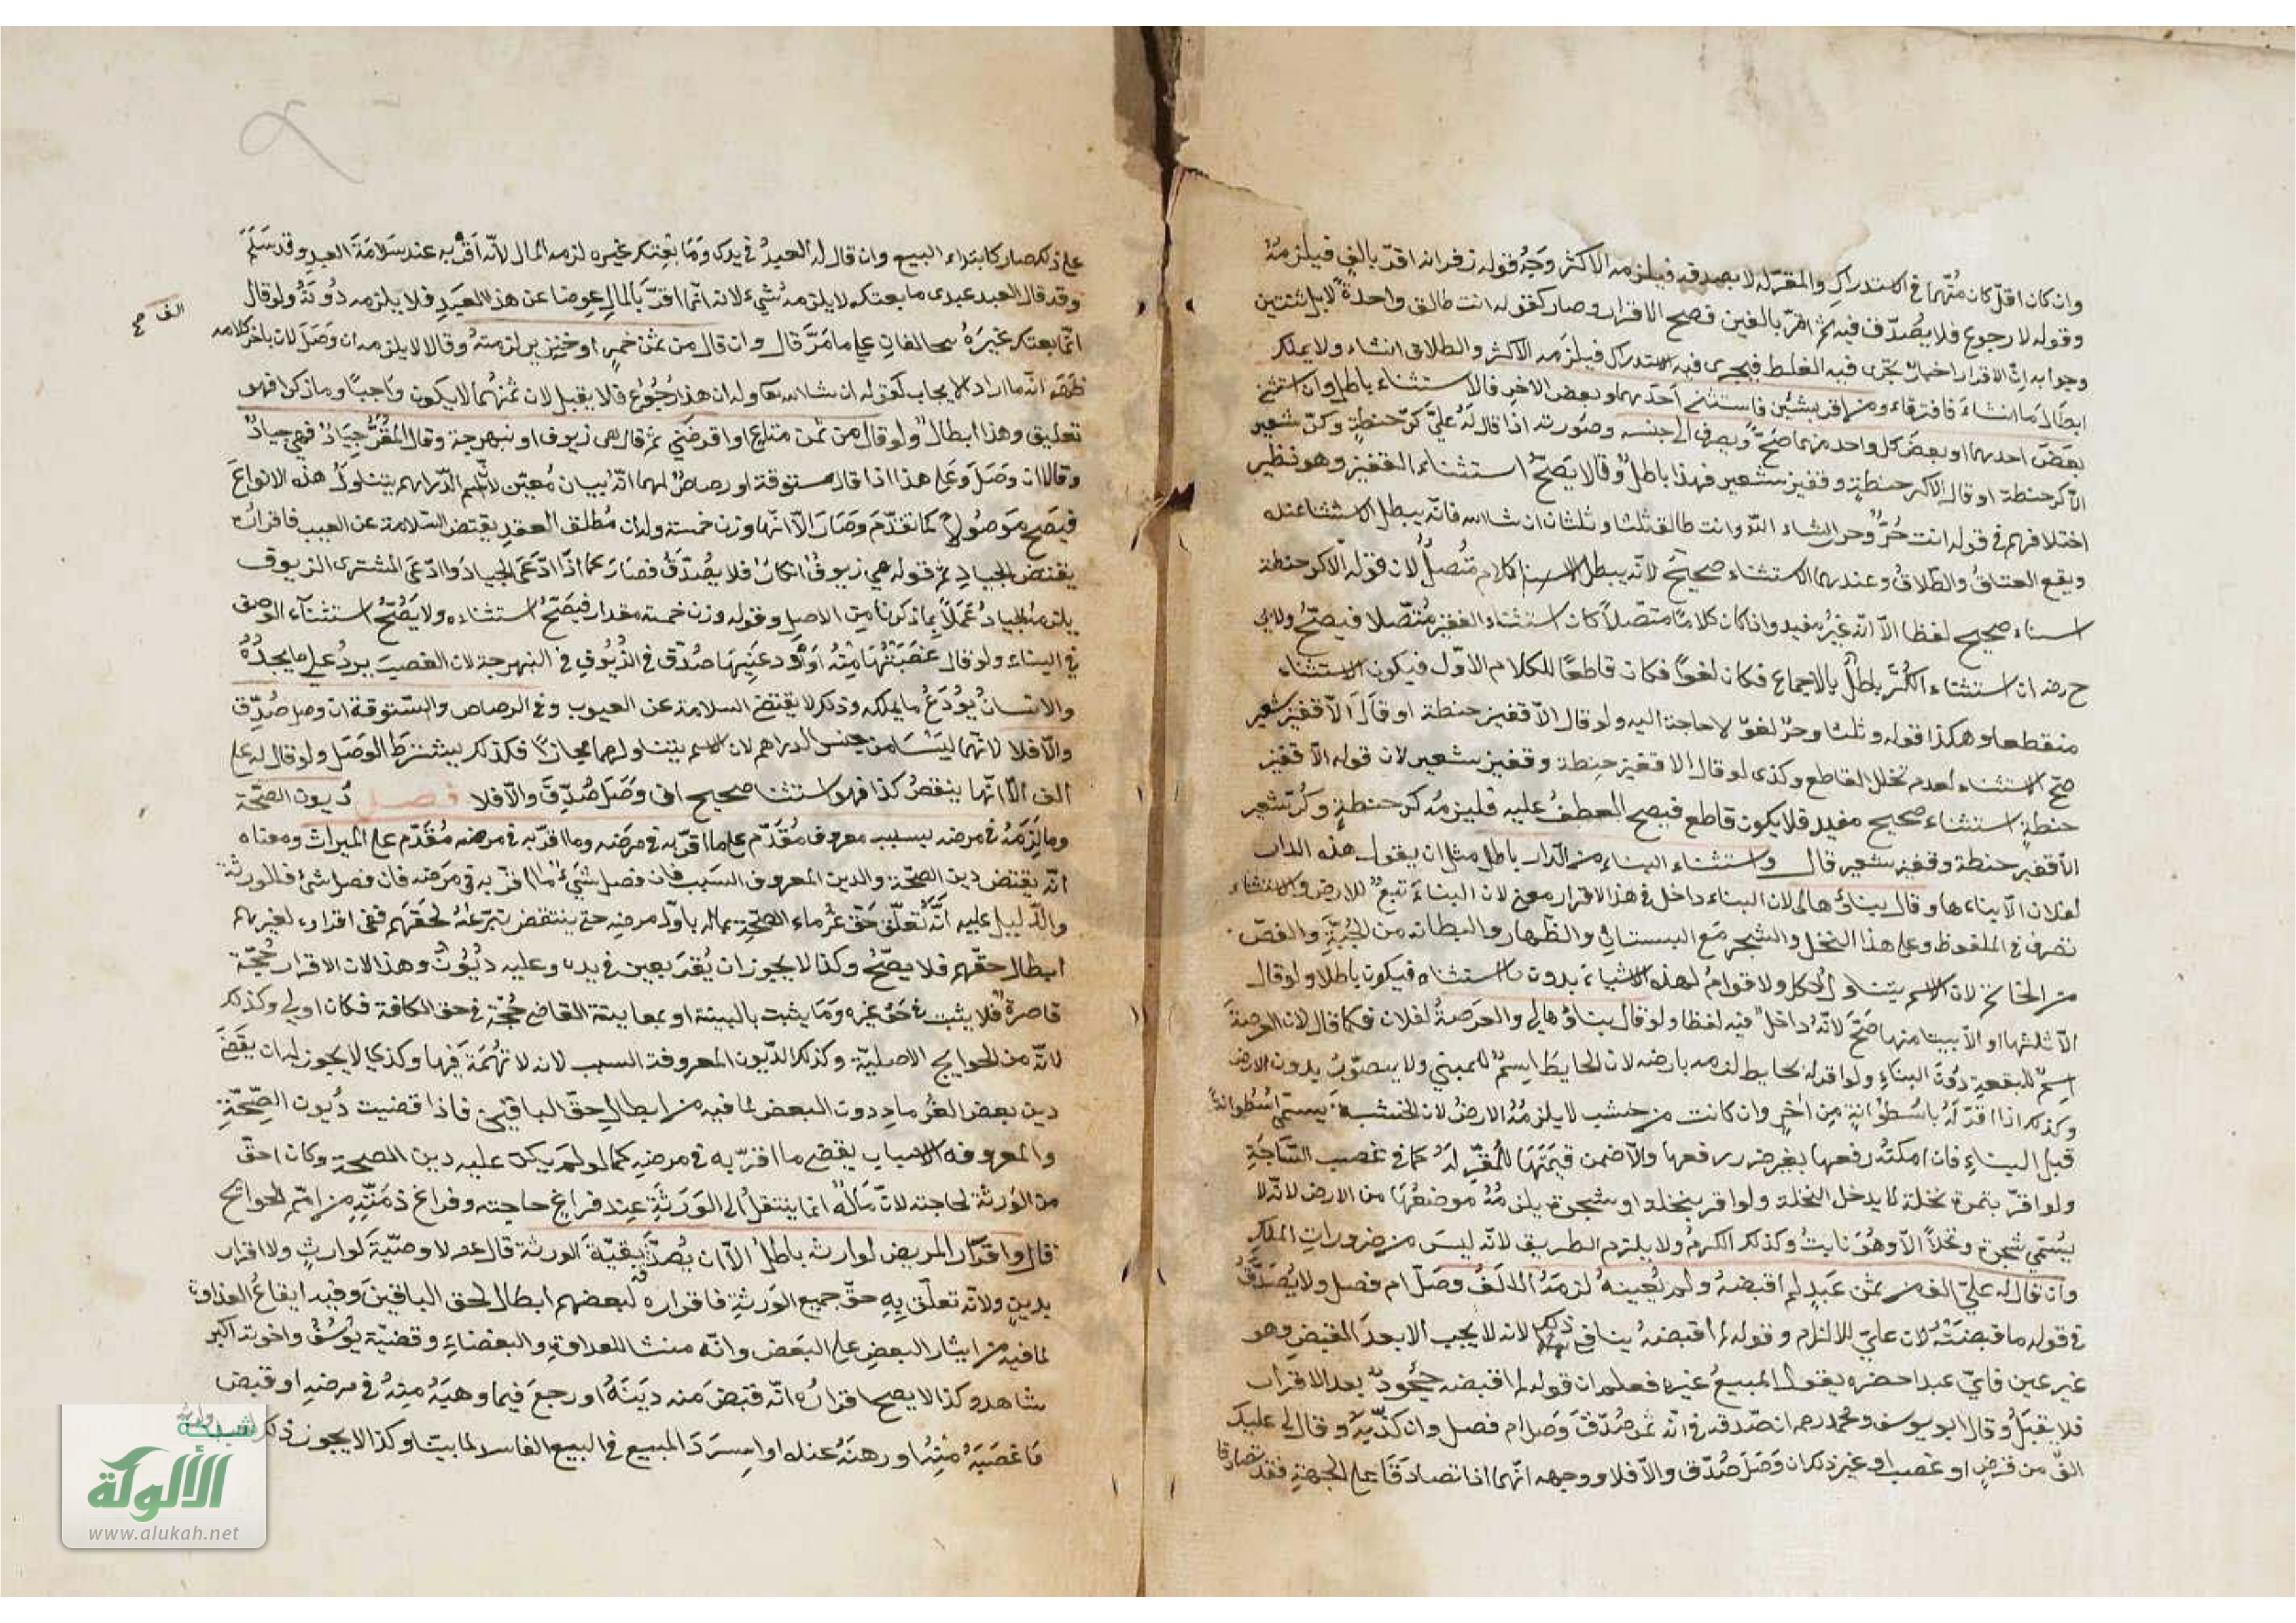 وان كان اقل كان متهما في الاستدراك والمقر له لا يصدقه فيلزمه الاكثر وجه قوله زفر انه اقر بالف فيلزمه
وقوله لا رجوع فلا يصدق فيه ثم اقر بالفين فصح الاقرار وصار كقوله انت طالق واحدة لا بل ثنتين
وجوابه ان الاقرار اخبار يجرى فيه الغلط فيجرى فيه الاستدراك فيلزمه الاكثر والطلاق انشاء ولا يملك
ابطال ما انشاء فافترقا ومن اقر بشيئين فاستثنى احدهما وبعض الاخر فالاستثناء باطل وان استثنى
بعض احدهما او بعض كل واحد منهما صح ويصرف الى جنسه وصورته اذا قال له علي كر حنطة وكر شعير
الا كر حنطة او قال الا كر حنطة وقفيز شعير فهذا باطل وقالا يصح استثناء القفيز وهو نظير
اختلافهم في قوله انت حر وحر ان شاء الله وانت طالق ثلثا وثلثا ان شا الله فانه يبطل الاستثنا عنده
ويقع العتاق والطلاق وعندهما الاستثناء صحيح لانه كلام متصل لان قوله الا كر حنطة
استثناء صحيح لفظا الا انه غير مفيد واذا كان كلاما متصلا كان استثناء القفيز متصلا فيصح ولابي
ح رضه ان استثناء الكر باطل بالاجماع فكان لغوا فكان قاطعا للكلام الاول فيكون الاستثناء
منقطعا وهكذا قوله وثلثا وحر لغو لا حاجة اليه ولو قال الا قفيز حنطة او قال الا قفيز شعير
صح الاستثناء لعدم تخلل القاطع وكذى لو قال الا قفيز حنطة وقفيز شعير لان قوله الا قفيز
حنطة استثناء صحيح مفيد فلا يكون قاطع فيصح العطف عليه فيلزمه كر حنطة وكر شعير
الا قفيز حنطة وقفيز شعير قال واستثناء البناء من الدار باطل مثل ان يقول هذه الدار
لفلان الا بناءها وقال بناؤها لى لان البناء داخل في هذا الاقرار معنى لان البناء تبع للارض والاستثناء
تصرف في الملفوظ وعلى هذا النخل والشجر مع البستان والظهار والبطانه من الجبة والفص
من الخاتم لان الاسم يتناول الكل ولا قوام لهذه الاشياء بدون الاستثناء فيكون باطلا ولو قال
الا ثلثها او الا بيتا منها صح لانه داخل فيه لفظا ولو قال بناؤها لى والعرصة لفلان فكما قال لان العرصة
اسم للبقعة دون البناء ولو اقر له بحايط لزمه بارضه لان الحايط اسم للمبني ولا يتصور بدون الارض
وكذلك اذا اقر له باسطوانة من اجر وان كانت من خشب لا يلزمه الارض لان الخشبة يسمى اسطوانة
قبل البناء فان امكنه رفعها بغير ضرر رفعها والا ضمن قيمتها للمقر له كما في غصب الساجة
ولو اقر بثمرة نخلة لا يدخل النخلة ولو اقر بنخلة او شجرة يلزمه موضعها من الارض لانه لا
يسمى شجرة ونخلا الا وهو نابت وكذلك الكرم ولا يلزم الطريق لانه ليس من ضرورات الملك
وان قال له علي الف من ثمن عبد لم اقبضه ولم يعينه لزمه الالف وصل ام فصل ولا يصدق
في قوله ما قبضته لان علي للالزام وقوله لم اقبضه ينافي ذلك لانه لا يجب الا بعد القبض وهو
غير عين فاي عبد احضره يقول المبيع غيره فعلم ان قوله لم اقبضه جحود بعد الاقرار
فلا يقبل وقال ابو يوسف ومحمد رحمه ان صدقه في انه ثمن صدق وصل ام فصل وان كذبه وقال لى عليك
الف من قرض او غصب او غير ذلك ان وصل صدق والا فلا ووجهه انهما اذا تصادقا على الجهة فقد تصادقا
على ذلك صار كابتداء البيع وان قال له العبد في يدك وما بعتك غيره لزمه المال لانه اقر به عند سلامة العبد وقد سلم
وقد قال العبد عبدى ما بعتكه لا يلزمه شيء لانه انما اقر بالمال عوضا عن هذا العبد فلا يلزمه دونه ولو قال
انما بعتك غيره يتحالفان على ما مر قال وان قال من ثمن خمر او خنزير لزمته وقالا لا يلزمه ان وصل لان باخر كلامه
الف صح
ظهر انه ما اراد الايجاب كقوله ان شا الله تعا وله ان هذا رجوع فلا يقبل لان ثمنهما لا يكون واجبا وما ذكرا فهو
تعليق وهذا ابطال ولو قال من ثمن متاع او اقرضني ثم قال هى زيوف او نبهرجة وقال المقر جياد فهي جياد
وقالا ان وصل وعلى هذا اذا قال ستوقة او رصاص لهما انه بيان مغير لان اسم الدراهم يتناول هذه الانواع
فيصح موصولا كما تقدم وصار الا انها وزن خمسة وله ان مطلق العقد يقتضى السلامة عن العيب فاقراره
يقتضى الجياد ثم قوله هي زيوف انكار فلا يصدق فصار كما اذا ادعى الجياد وادعى المشترى الزيوف
يلزمه الجياد عملا بما ذكرنا من الاصل وقوله وزن خمسة مقدار فيصح استثناءه ولا يصح استثناء الوصف
في البناء ولو قال غصبتها منه او اودعنيها صدق في الزيوف في النبهرجة لان الغصب يرد على ما يجده
والانسان يودع ما يملكه وذلك لا يقتضى السلامة عن العيوب وفي الرصاص والستوقة ان وصل صدق
والا فلا لانهما ليستا من جنس الدراهم لان الاسم يتناولهما مجازا فكذلك يشترط الوصل ولو قال له على
الف الا انها ينقص كذا فهو استثنا صحيح ان وصل صدق والا فلا فصل ديون الصحة
وما لزمه في مرضه بسبب معروف مقدم على ما اقر به في مرضه وما اقر به في مرضه مقدم على الميراث ومعناه
انه يقتضى دين الصحة والدين المعروف السبب فان فضل شيء ما اقر به في مرضه فان فضل شئ فللورثة
والدليل عليه انه تعلق حق غرماء الصحة بماله باول مرضه حتى ينتقض تبرعه لحقهم ففى اقراره لغيرهم
ابطال حقهم فلا يصح وكذا لا يجوز ان يقر بعين في يده وعليه ديون وهذا لان الاقرار حجة
قاصرة فلا يثبت في حق غيره وما يثبت بالبينة او بمعاينة القاضي حجة في حق الكافة فكان اولى وكذلك
لانه من الحوايج الاصلية وكذلك الديون المعروفة السبب لانه لا تهمة فيها وكذي لا يجوز له ان يقضي
دين بعض الغرماء دون البعض لما فيه من ابطال حق الباقين فاذا قضيت ديون الصحة
والمعروفه الاسباب يقضي ما اقر به في مرضه كما لو لم يكن عليه دين الصحة وكان احق
من الورثة لحاجته لان ماله انما ينتقل الى الورثة عند فراغ حاجته وفراغ ذمته من اهم الحوائج
قال واقرار المريض لوارثه باطل الا ان يصدقه بقية الورثة قال عم لا وصية لوارث ولا اقرار
بدين ولانه تعلق به حق جميع الورثة فاقراره لبعضهم ابطال لحق الباقين وفيه ايقاع العداوة
لما فيه من ايثار البعض على البعض وانه منشا للعداوة والبغضاء وقضية يوسف واخوته اكبر
شاهد وكذا لا يصح اقراره انه قبض منه دينه او رجع فيما وهبه منه في مرضه او قبض
ما غصبه منه او رهنه عنده او استرد المبيع في البيع الفاسد لما بينا وكذا لا يجوز ذلك
شبكة
الألوكة
www.alukah.net